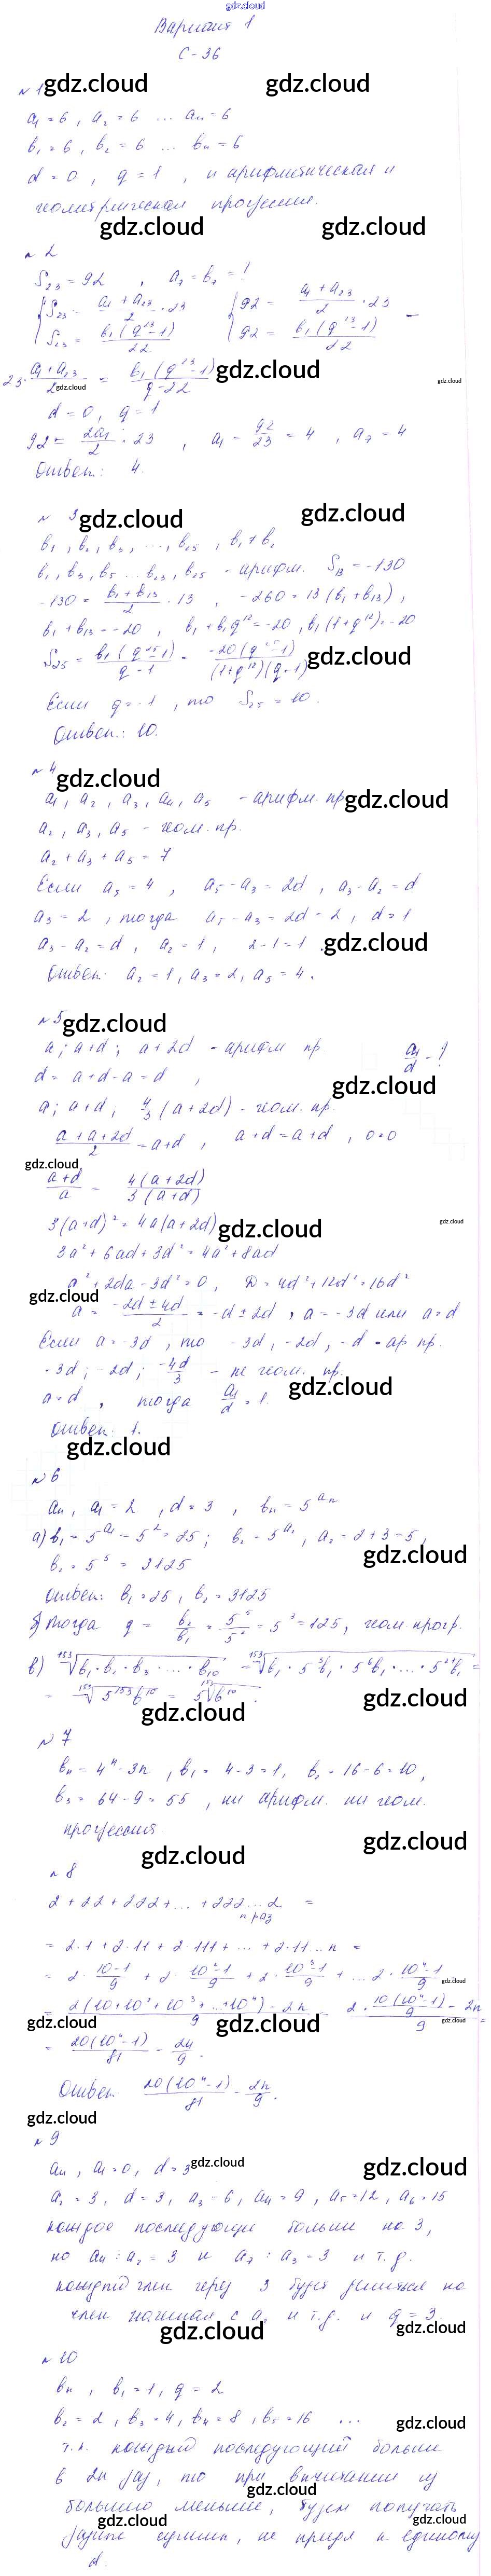 gdz.cloud
Вариант 1
С-36
№1 gdz.cloud gdz.cloud
a₁ = 6, a₂ = 6 ... aₙ = 6
b₁ = 6, b₂ = 6 ... bₙ = 6
d = 0, q = 1, и арифметическая и
геометрическая прогрессии.
gdz.cloud gdz.cloud
№2
S₂₃ = 92, a₇ = b₇ = ?
{ S₂₃ = (a₁ + a₂₃)/2 · 23 { 92 = (a₁ + a₂₃)/2 · 23
gdz.cloud
gdz.cloud gdz.cloud
d = 0, q = 1
92 = 2a₁/2 · 23, a₁ = 92/23 = 4, a₇ = 4
Ответ: 4.
№3 gdz.cloud gdz.cloud
b₁, b₂, b₃, ..., b₂₅, b₁ ≠ b₂
b₁, b₃, b₅ ... b₂₃, b₂₅ - арифм. S₁₃ = -130
-130 = (b₁ + b₁₃)/2 · 13, -260 = 13(b₁ + b₁₃),
b₁ + b₁₃ = -20, b₁ + b₁q¹² = -20, b₁(1+q¹²) = -20
S₂₅ = b₁(q²⁵-1)/(q-1) = -20(q²⁵-1)/((1+q¹²)(q-1)) gdz.cloud
Если q = -1, то S₂₅ = 10.
Ответ: 10.
№4 gdz.cloud
a₁, a₂, a₃, a₄, a₅ - арифм. пр gdz.cloud
a₂, a₃, a₅ - геом. пр.
a₂ + a₃ + a₅ = 7
Если a₅ = 4, a₅ - a₃ = 2d, a₃ - a₂ = d
a₃ = 2, тогда a₅ - a₃ = 2d = 2, d = 1
a₃ - a₂ = d, a₂ = 1, 2-1 = 1 gdz.cloud
Ответ: a₂ = 1, a₃ = 2, a₅ = 4.
№5 gdz.cloud
a; a+d; a+2d - арифм пр a₁/d - ?
d = a + d - a = d, gdz.cloud
a; a+d; 4/3 (a+2d) - геом. пр.
(a + a + 2d)/2 = a+d, a+d = a+d, 0=0
gdz.cloud
(a+d)/a = 4(a+2d)/3(a+d)
3(a+d)² = 4a(a+2d) gdz.cloud gdz.cloud
3a² + 6ad + 3d² = 4a² + 8ad
a² + 2da - 3d² = 0, D = 4d² + 12d² = 16d²
gdz.cloud
a = (-2d ± 4d)/2 = -d ± 2d, a = -3d или a = d
Если a = -3d, то -3d, -2d, -d - ар пр.
-3d; -2d; -4d/3 - не геом. пр.
a = d, тогда a₁/d = 1. gdz.cloud
Ответ: 1.
gdz.cloud
№6
aₙ, a₁ = 2, d = 3, bₙ = 5^aₙ
а) b₁ = 5^a₁ = 5² = 25; b₂ = 5^a₂, a₂ = 2+3 = 5,
b₂ = 5⁵ = 3125 gdz.cloud
Ответ: b₁ = 25, b₂ = 3125
б) Тогда q = b₂/b₁ = 5⁵/5² = 5³ = 125, геом. прогр.
в) ¹⁵³√(b₁·b₂·b₃·...·b₁₀) = ¹⁵³√(b₁·5³b₁·5⁶b₁·...·5²⁷b₁) =
= ¹⁵³√(5¹⁵³b¹⁰) = 5 ¹⁵³√(b¹⁰).
gdz.cloud gdz.cloud
№7
bₙ = 4ⁿ - 3n, b₁ = 4-3 = 1, b₂ = 16-6 = 10,
b₃ = 64-9 = 55, ни арифм. ни геом.
прогрессия.
gdz.cloud gdz.cloud
№8
2 + 22 + 222 + ... + 222...2 =
n раз
= 2·1 + 2·11 + 2·111 + ... + 2·11...n =
= 2·(10-1)/9 + 2·(10²-1)/9 + 2·(10³-1)/9 + ... 2·(10ⁿ-1)/9 gdz.cloud
= (2(10+10²+10³+...+10ⁿ) - 2n)/9 = (2·10(10ⁿ-1)/9 - 2n)/9 =
gdz.cloud gdz.cloud gdz.cloud
= 20(10ⁿ-1)/81 - 2n/9.
Ответ 20(10ⁿ-1)/81 - 2n/9.
gdz.cloud
№9
aₙ, a₁ = 0, d = 3 gdz.cloud gdz.cloud
a₂ = 3, d = 3, a₃ = 6, a₄ = 9, a₅ = 12, a₆ = 15
каждое последующие больше на 3,
но a₄ : a₂ = 3 и a₇ : a₃ = 3 и т.д.
каждый член через 3 будет делиться на
член начиная с a₂ и т.д. и q = 3.
gdz.cloud gdz.cloud
№10
bₙ, b₁ = 1, q = 2
b₂ = 2, b₃ = 4, b₄ = 8, b₅ = 16 ...
gdz.cloud
т.к. каждый последующий больше
в 2n раз, то при вычитании из
gdz.cloud
большего меньшие, будем получать
gdz.cloud gdz.cloud
разные суммы, не придя к единому
d.